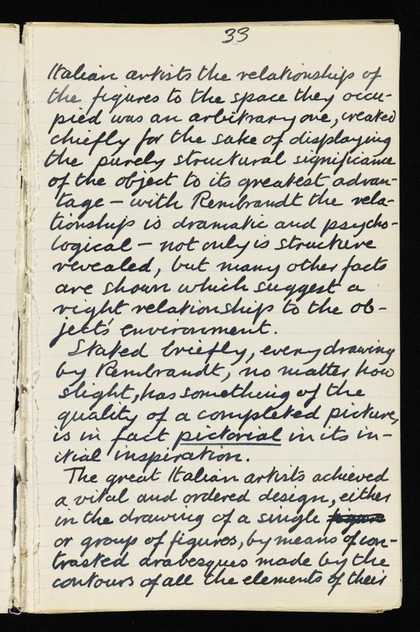 33
Italian artists the relationship of
the figures to the space they occu-
pied was an arbitrary one, created
chiefly for the sake of displaying
the purely structural significance
of the object to its greatest advan-
tage – with Rembrandt the rela-
tionship is dramatic and psycho-
logical – not only is structure
revealed, but many other facts
are shown which suggest a
right relationship to the ob-
jects' environment.
Stated briefly, every drawing
by Rembrandt, no matter how
slight, has something of the
quality of a completed picture,
is in fact pictorial in its in-
itial inspiration.
The great Italian artists achieved
a vital and ordered design, either
in the drawing of a single
or group of figures, by means of con-
trasted arabesques made by the
contours of all the elements of their